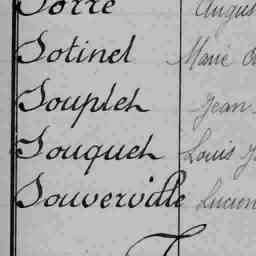 Sorre Augus
Sotinel Marie
Souplet Jean
Souquet Louis
Souverville Lucien
T